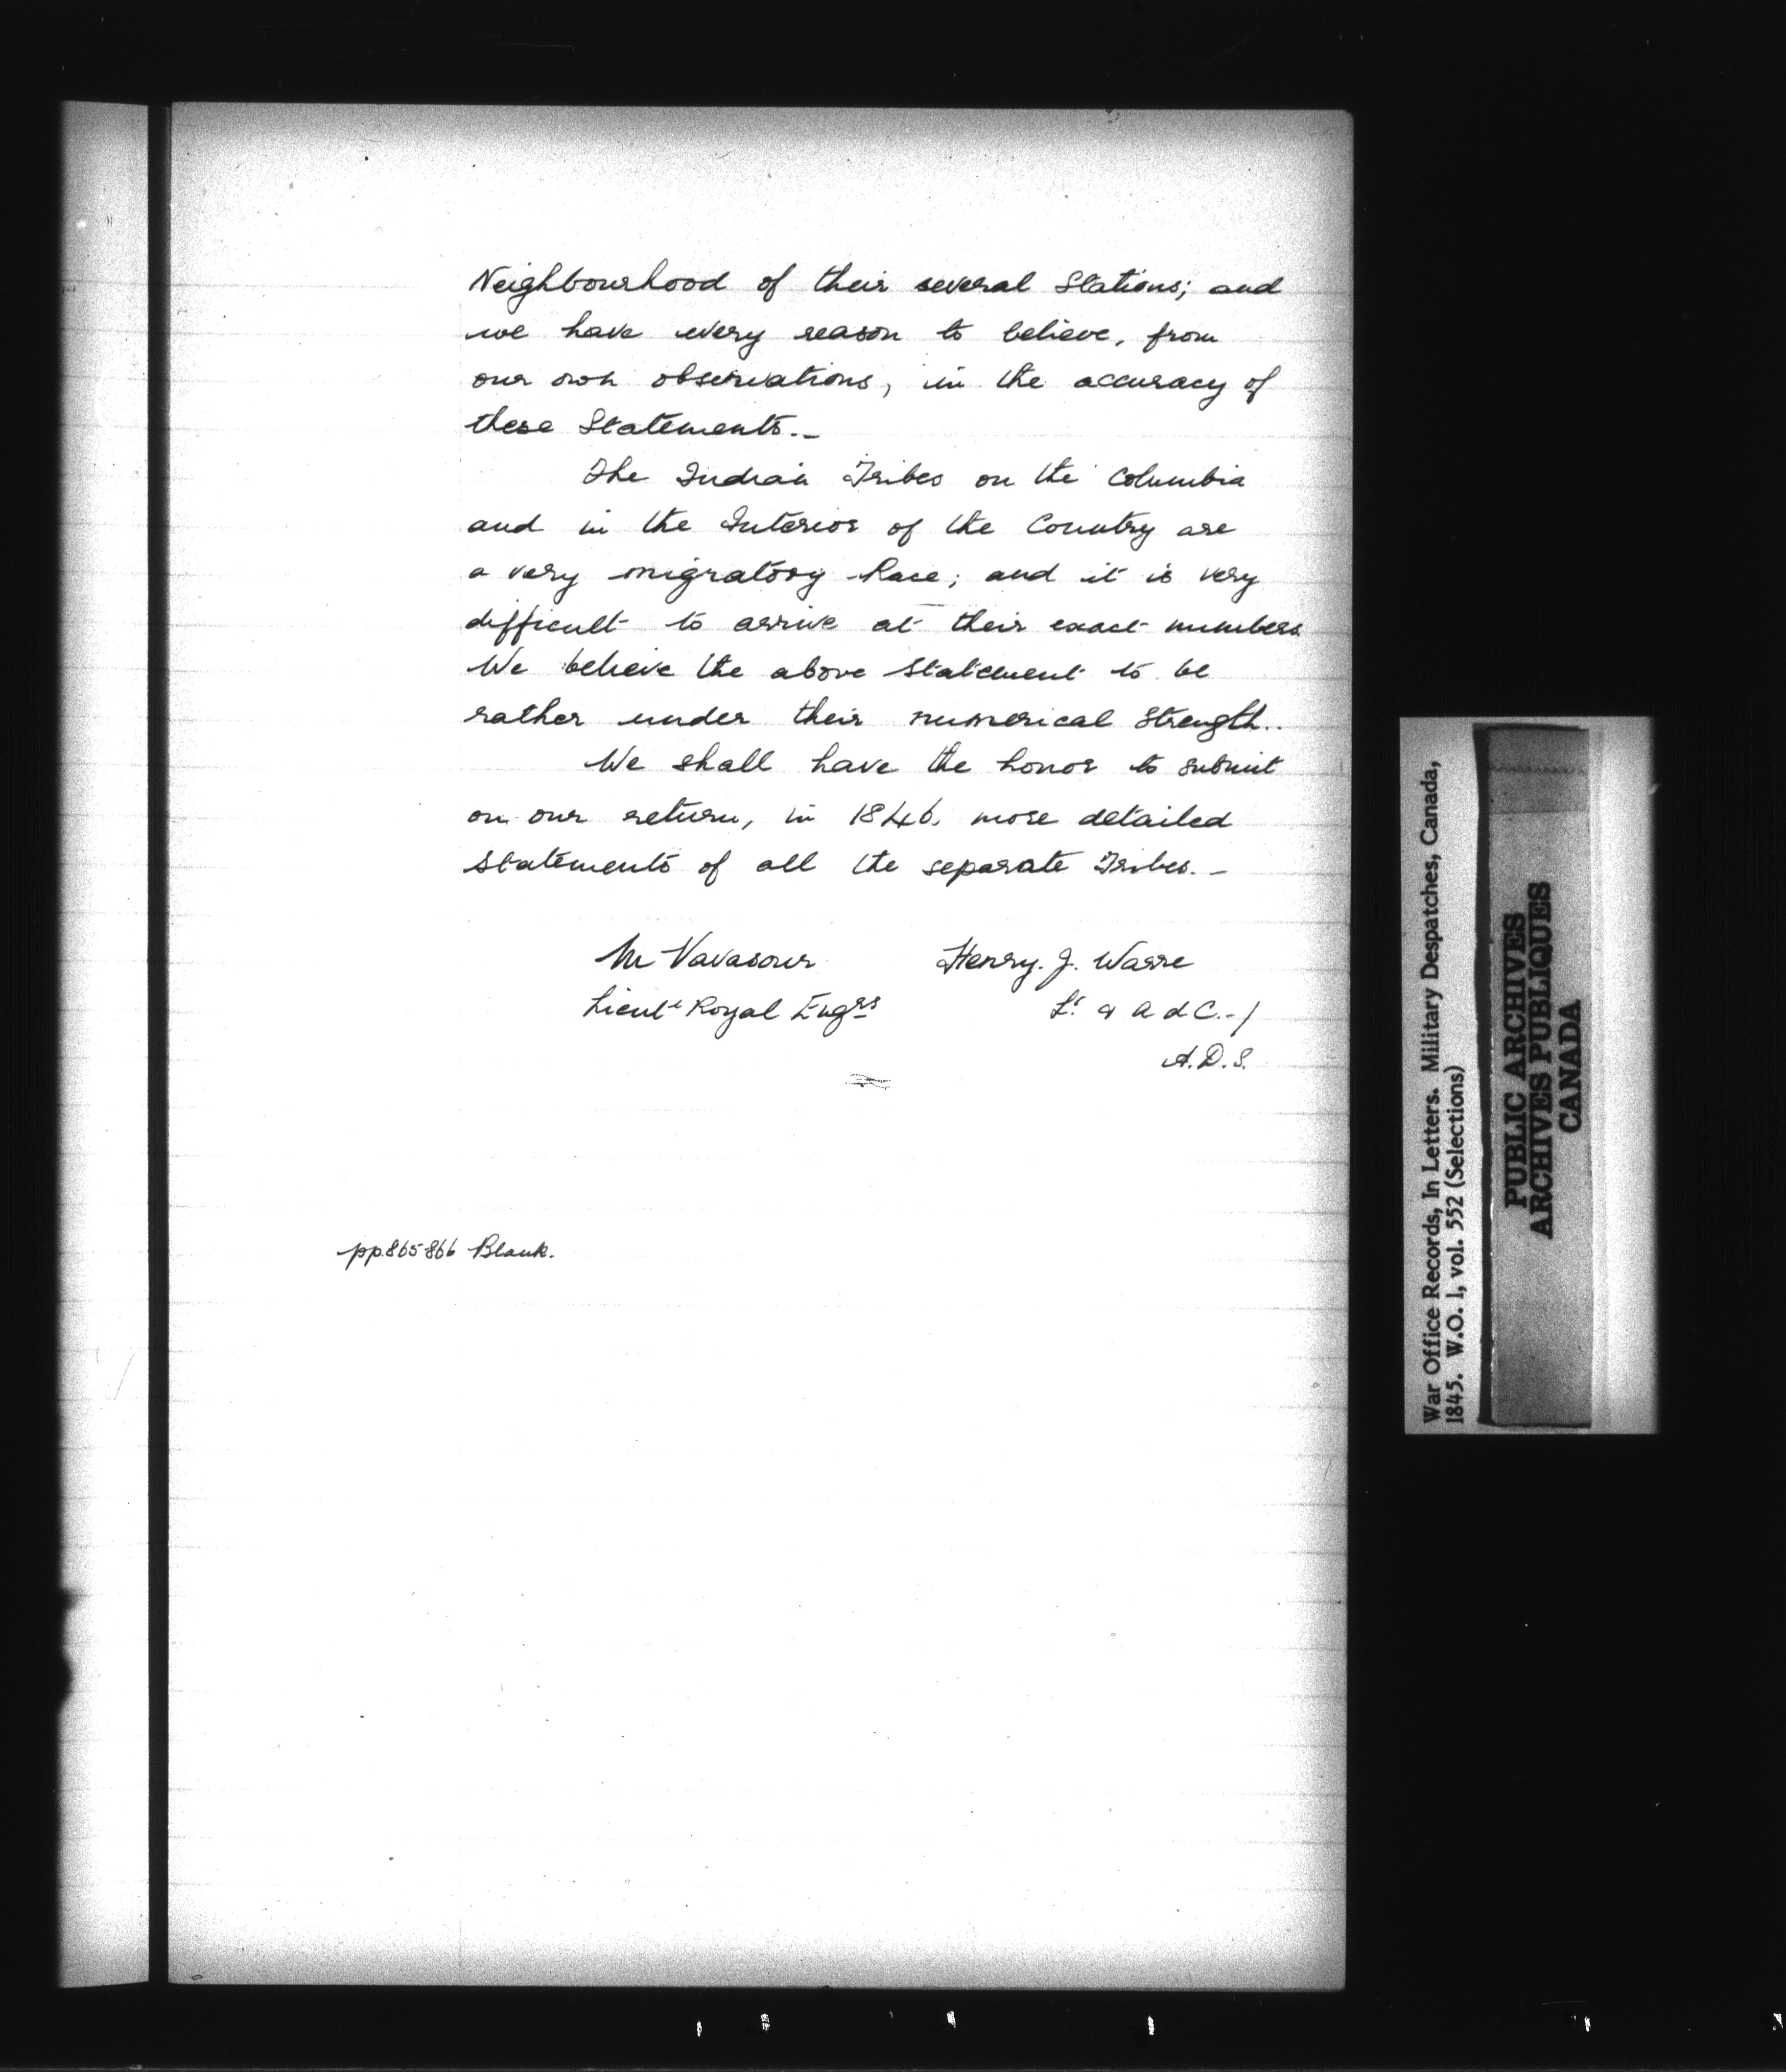 Neighbourhood of their several Stations; and
we have every reason to believe, from
our own observations, in the accuracy of
these Statements.-
The Indian Tribes on the Columbia
and in the Interior of the Country are
a very migratory Race; and it is very
difficult to arrive at their exact numbers
We believe the above Statement to be
rather under their numerical Strength..
We shall have the honor to submit
on our return, in 1846. more detailed
Statements of all the separate Tribes.-
M Vavasour
Lieut Royal Engrs
Henry. J. Warre
Lt & A d C.-/
A.D.S.
pp.865-866 Blank.
War Office Records, In Letters. Military Despatches, Canada,
1845. W.O. 1, vol. 552 (Selections)
PUBLIC ARCHIVES
ARCHIVES PUBLIQUES
CANADA